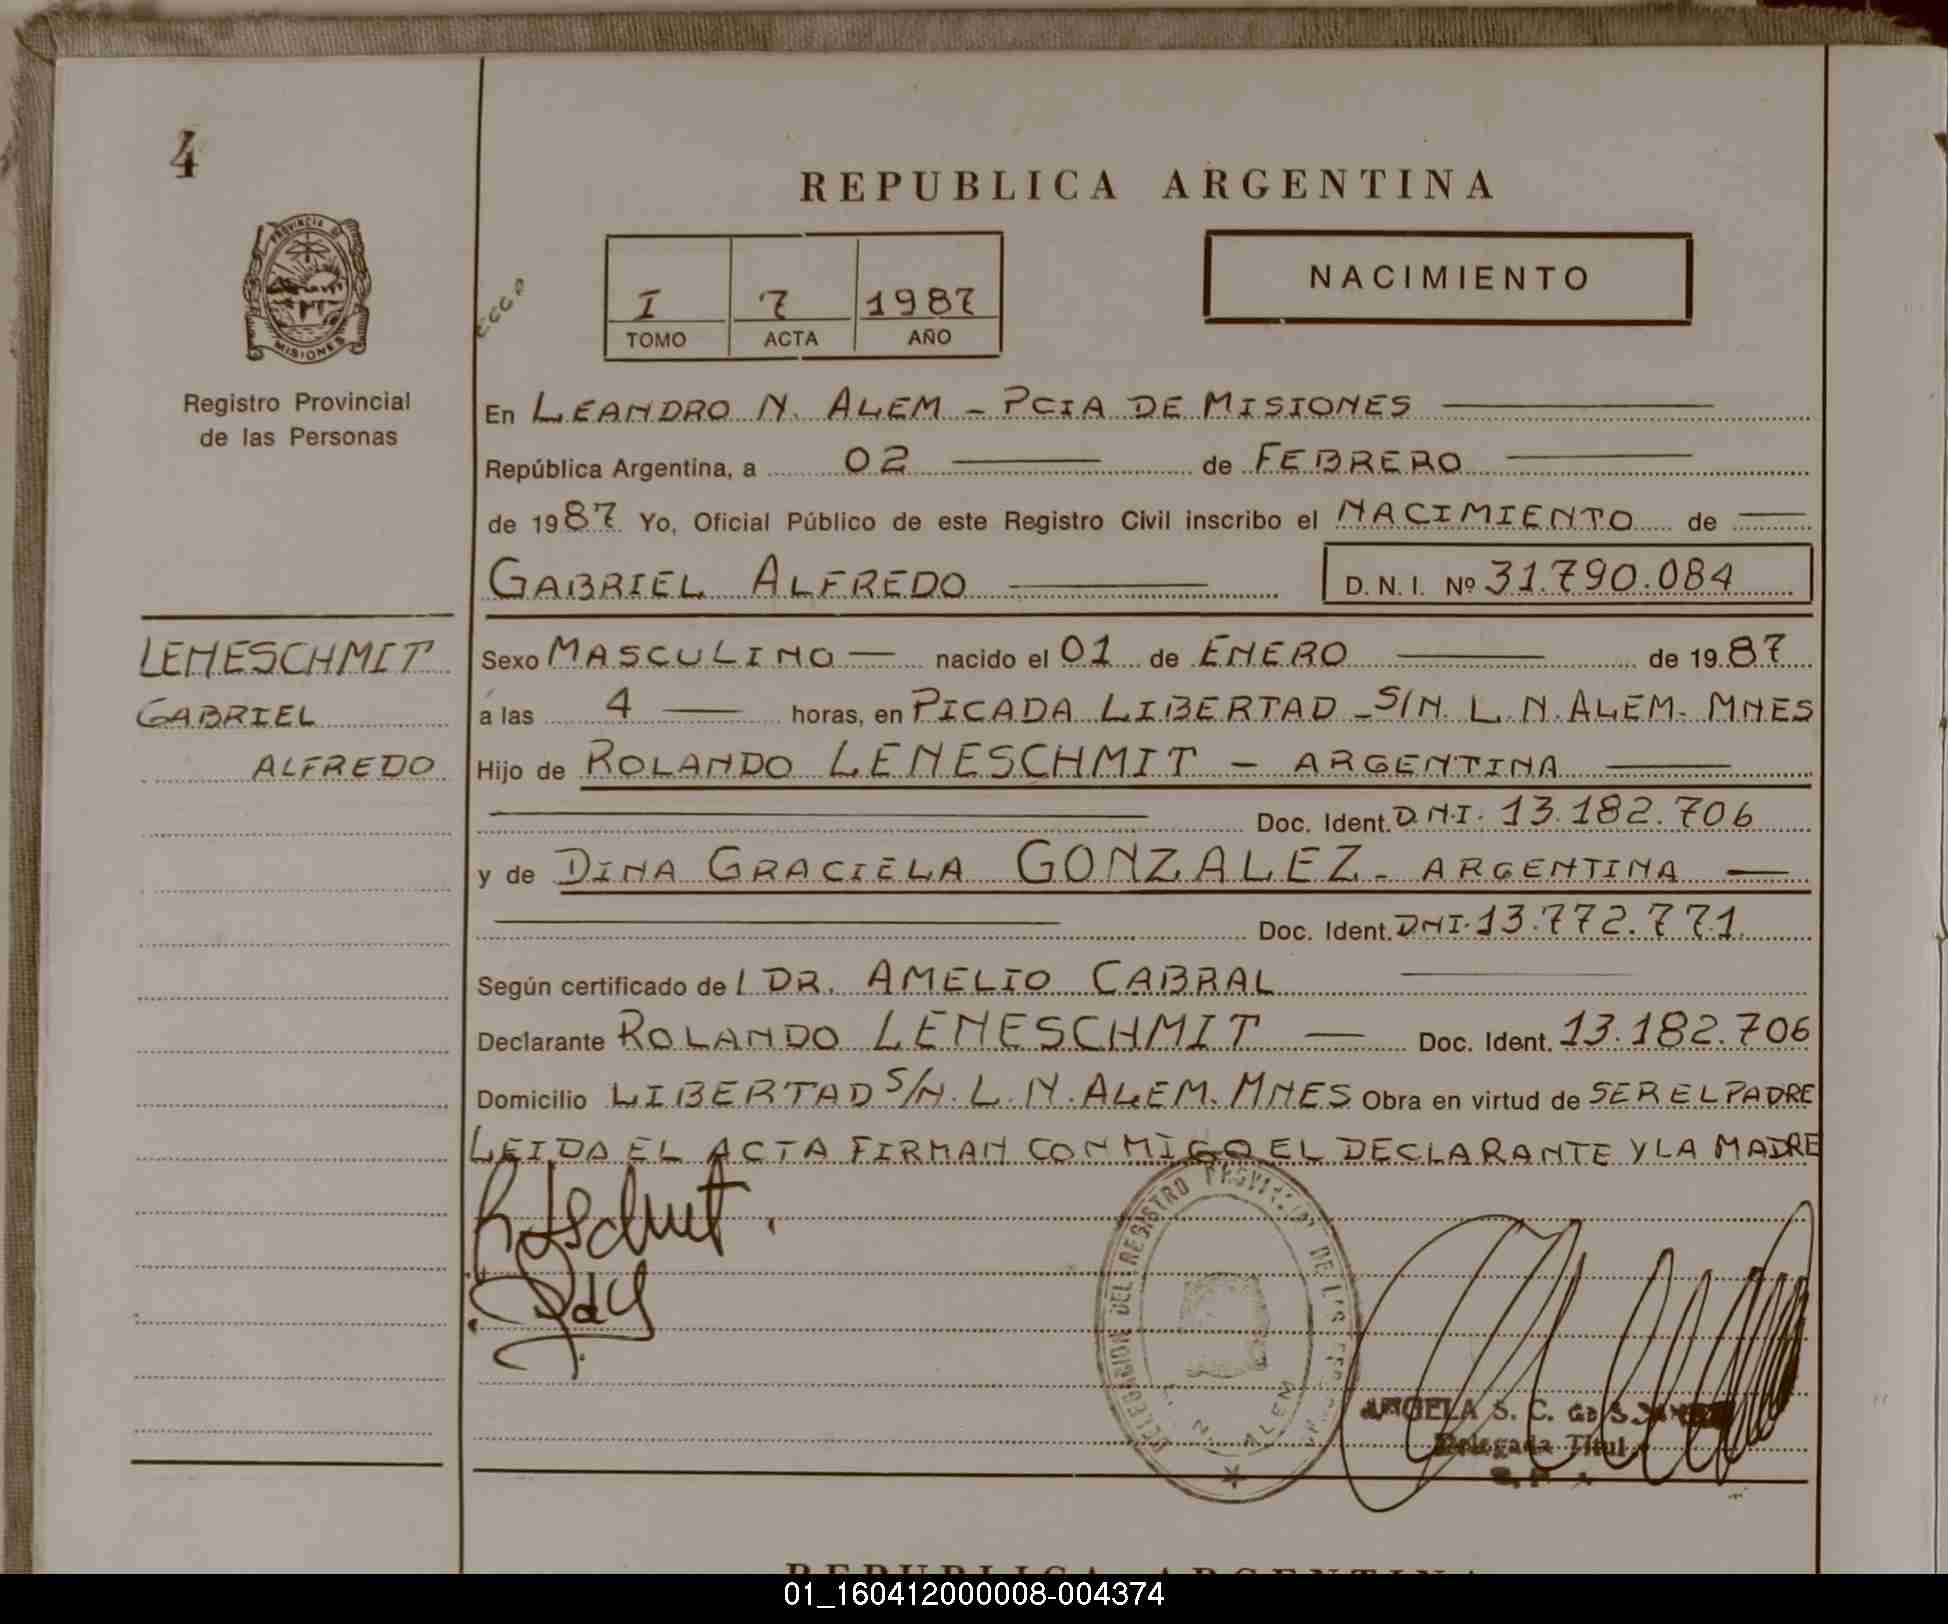 4
REPUBLICA ARGENTINA
PROVINCIA DE
MISIONES
I 7 1987
TOMO ACTA AÑO
NACIMIENTO
Registro Provincial
de las Personas
En LEANDRO N. ALEM - PCIA DE MISIONES
República Argentina, a 02 de FEBRERO
de 1987 Yo, Oficial Público de este Registro Civil inscribo el NACIMIENTO de
GABRIEL ALFREDO D. N. I. Nº 31.790.084
LENESCHMIT
GABRIEL
ALFREDO
Sexo MASCULINO — nacido el 01 de ENERO de 1987
á las 4 — horas, en PICADA LIBERTAD - S/N. L. N. ALEM. MNES
Hijo de ROLANDO LENESCHMIT - ARGENTINA
Doc. Ident. D.N.I. 13.182.706
y de DINA GRACIELA GONZALEZ - ARGENTINA —
Doc. Ident. DNI. 13.772.771
Según certificado de l DR. AMELIO CABRAL
Declarante ROLANDO LENESCHMIT — Doc. Ident. 13.182.706
Domicilio LIBERTAD S/N. L. N. ALEM. MNES Obra en virtud de SER EL PADRE
LEIDA EL ACTA FIRMAN CONMIGO EL DECLARANTE Y LA MADRE
DELEGACION DEL REGISTRO PROVINCIAL DE LAS
N. ALEM
ANGELA S. C.
Delegada Titul
REPUBLICA ARGENTINA
01_160412000008-004374